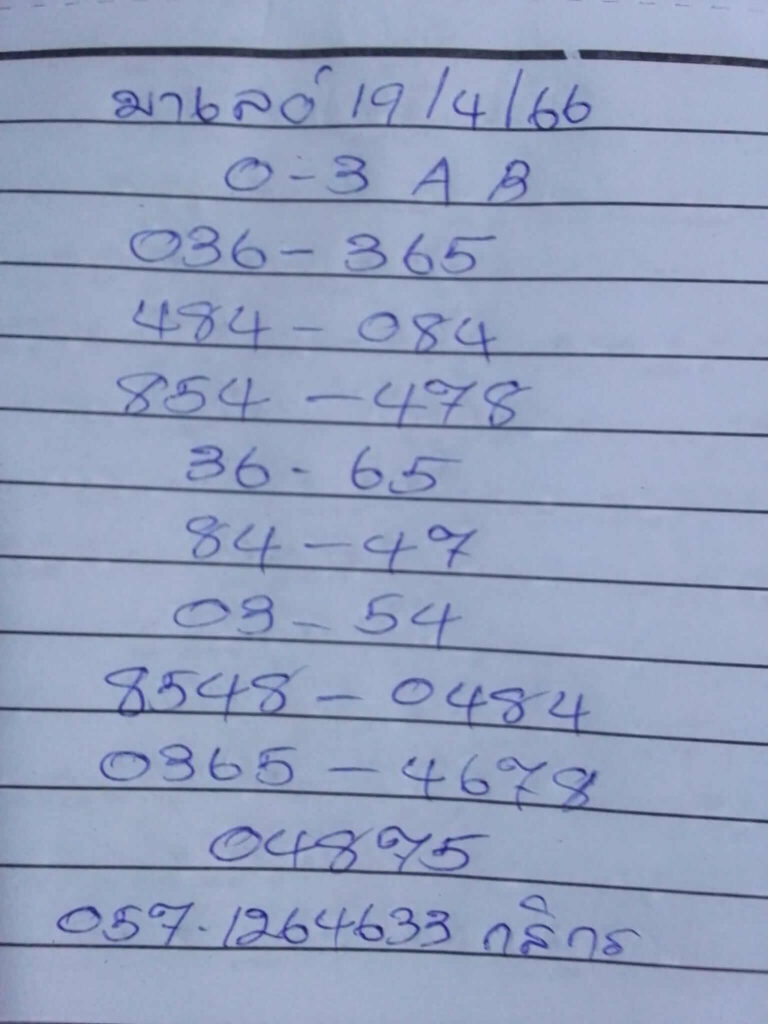 มาเลย์ 19/4/66
0-3 A B
036-365
484-084
854-478
36-65
84-47
03-54
8548-0484
0365-4678
04875
057-1264633 กสิกร